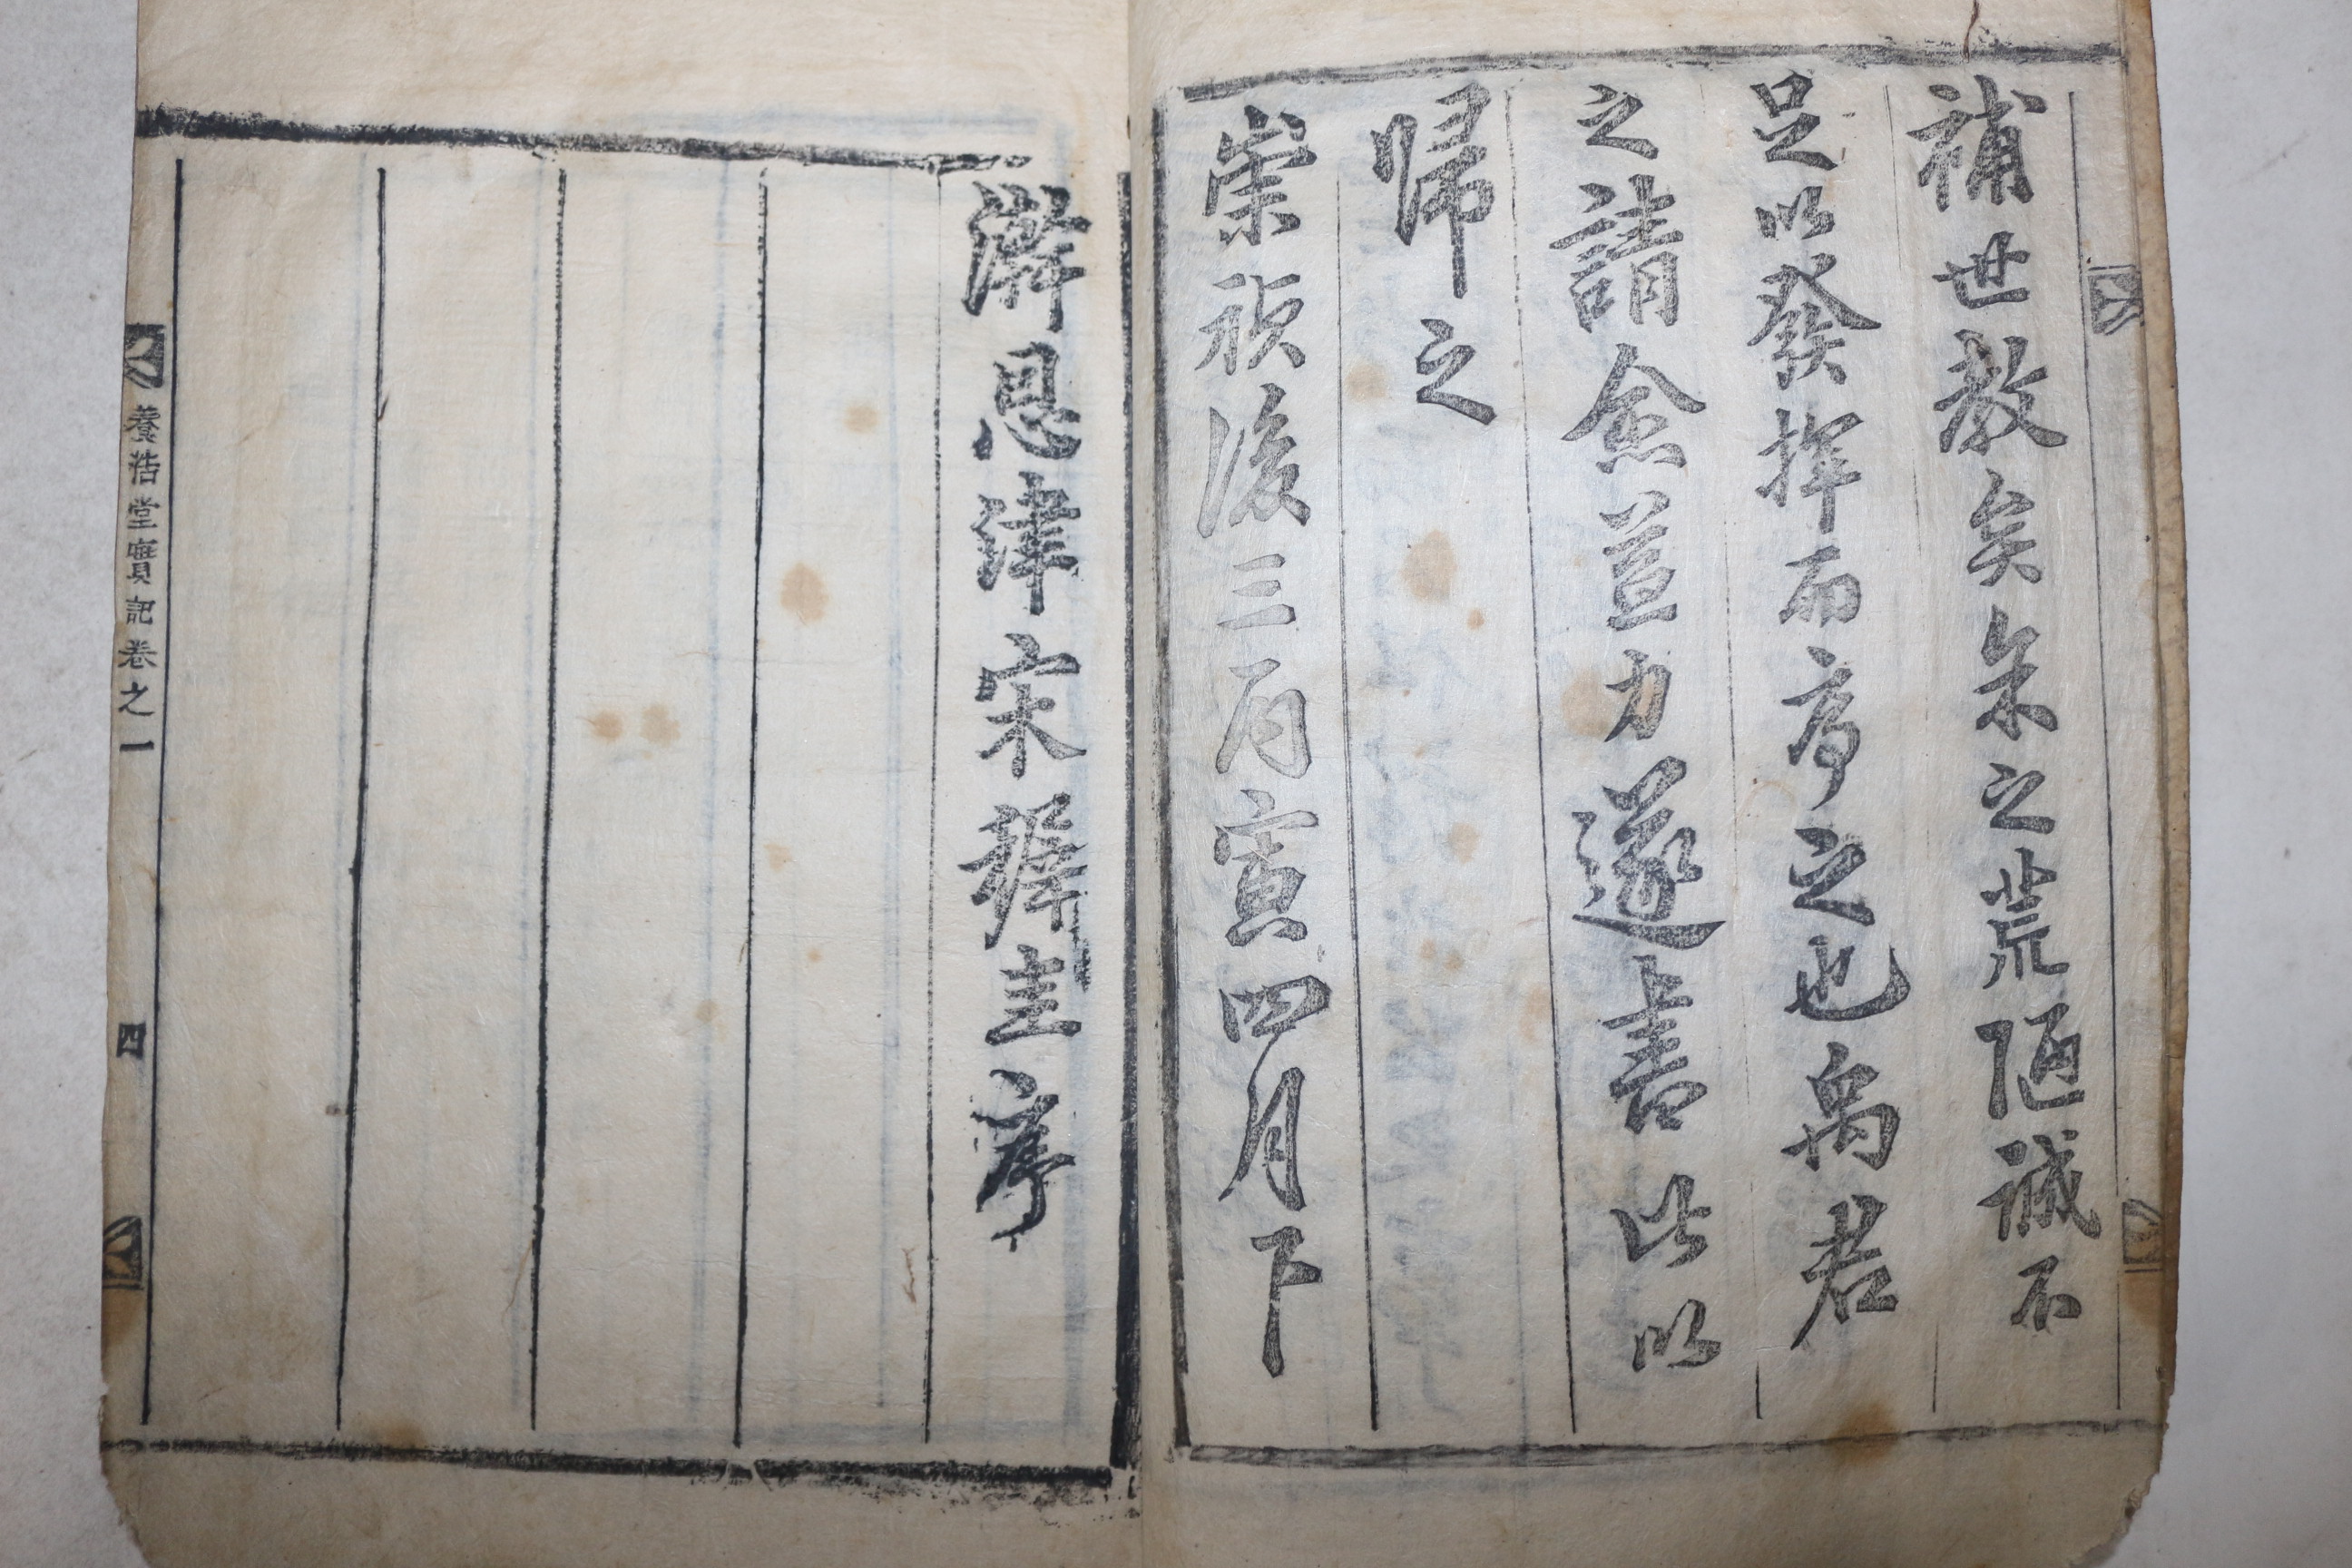 補世教矣余之荒陋誠不
足以發揮而序之也禹君
之請愈益力遂書此以
帰之
崇禎後三丙寅四月下
澣恩津宋穉圭序
養浩堂實記卷之一 四